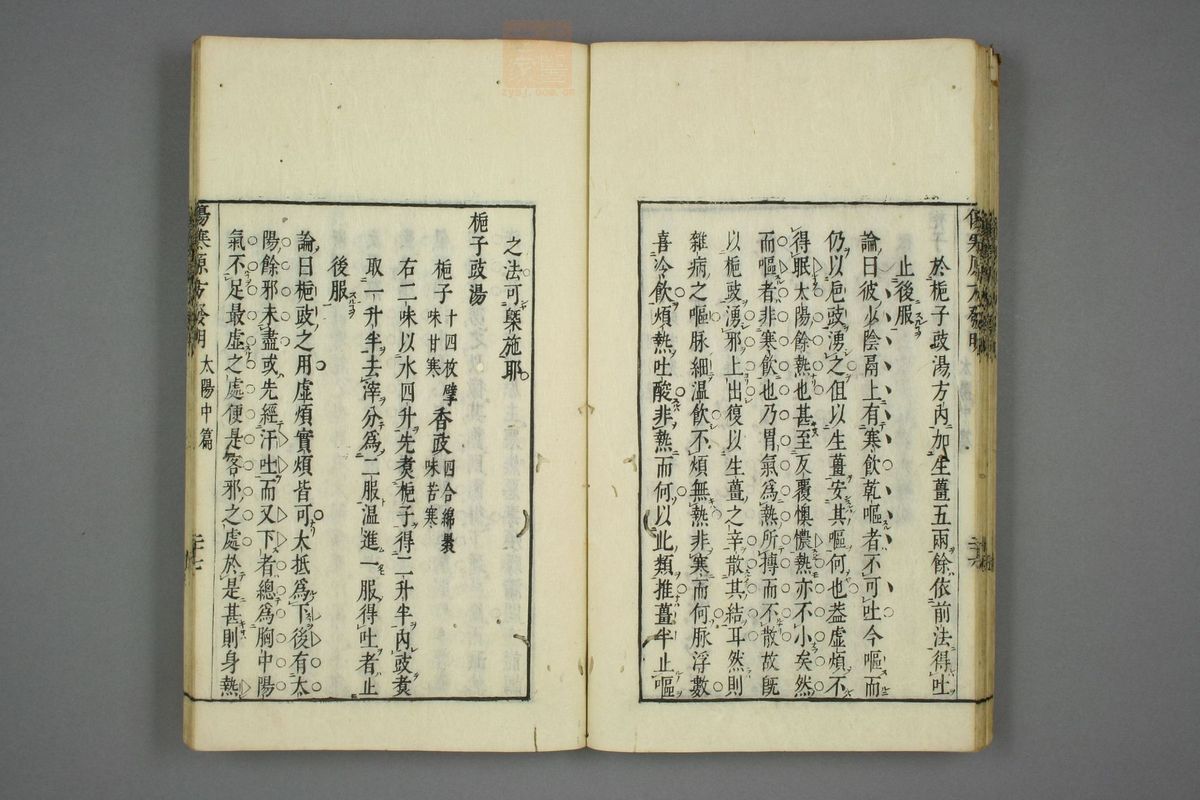 於梔子豉湯方內加生薑五兩餘依前法得吐
止後服
論曰彼少陰鬲上有寒飲乾嘔者不可吐今嘔而
仍以巵豉湧之但以生薑安其嘔何也葢虛煩不
得眠太陽餘熱也甚至反覆懊憹熱亦不小矣然
而嘔者非寒飲也乃胃氣為熱所摶而不散故旣
以梔豉湧邪上出復以生薑之辛散其結耳然則
雜病之嘔脉細温飲不煩無熱非寒而何脉浮數
喜冷飲煩熱吐酸非熱而何以此類推薑半止嘔
之法可槩施耶
梔子豉湯
梔子 十四枚擘 味甘寒 香豉 四合綿裹 味苦寒
右二味以水四升先煑梔子得二升半內豉煑
取一升半去滓分為二服温進一服得吐者止
後服
論曰梔豉之用虛煩實煩皆可大抵為下後有太
陽餘邪未盡或先經汗吐而又下者總為胸中陽
氣不足最虛之處便是客邪之處於是甚則身熱
傷寒原方發明 太陽中篇 二十七